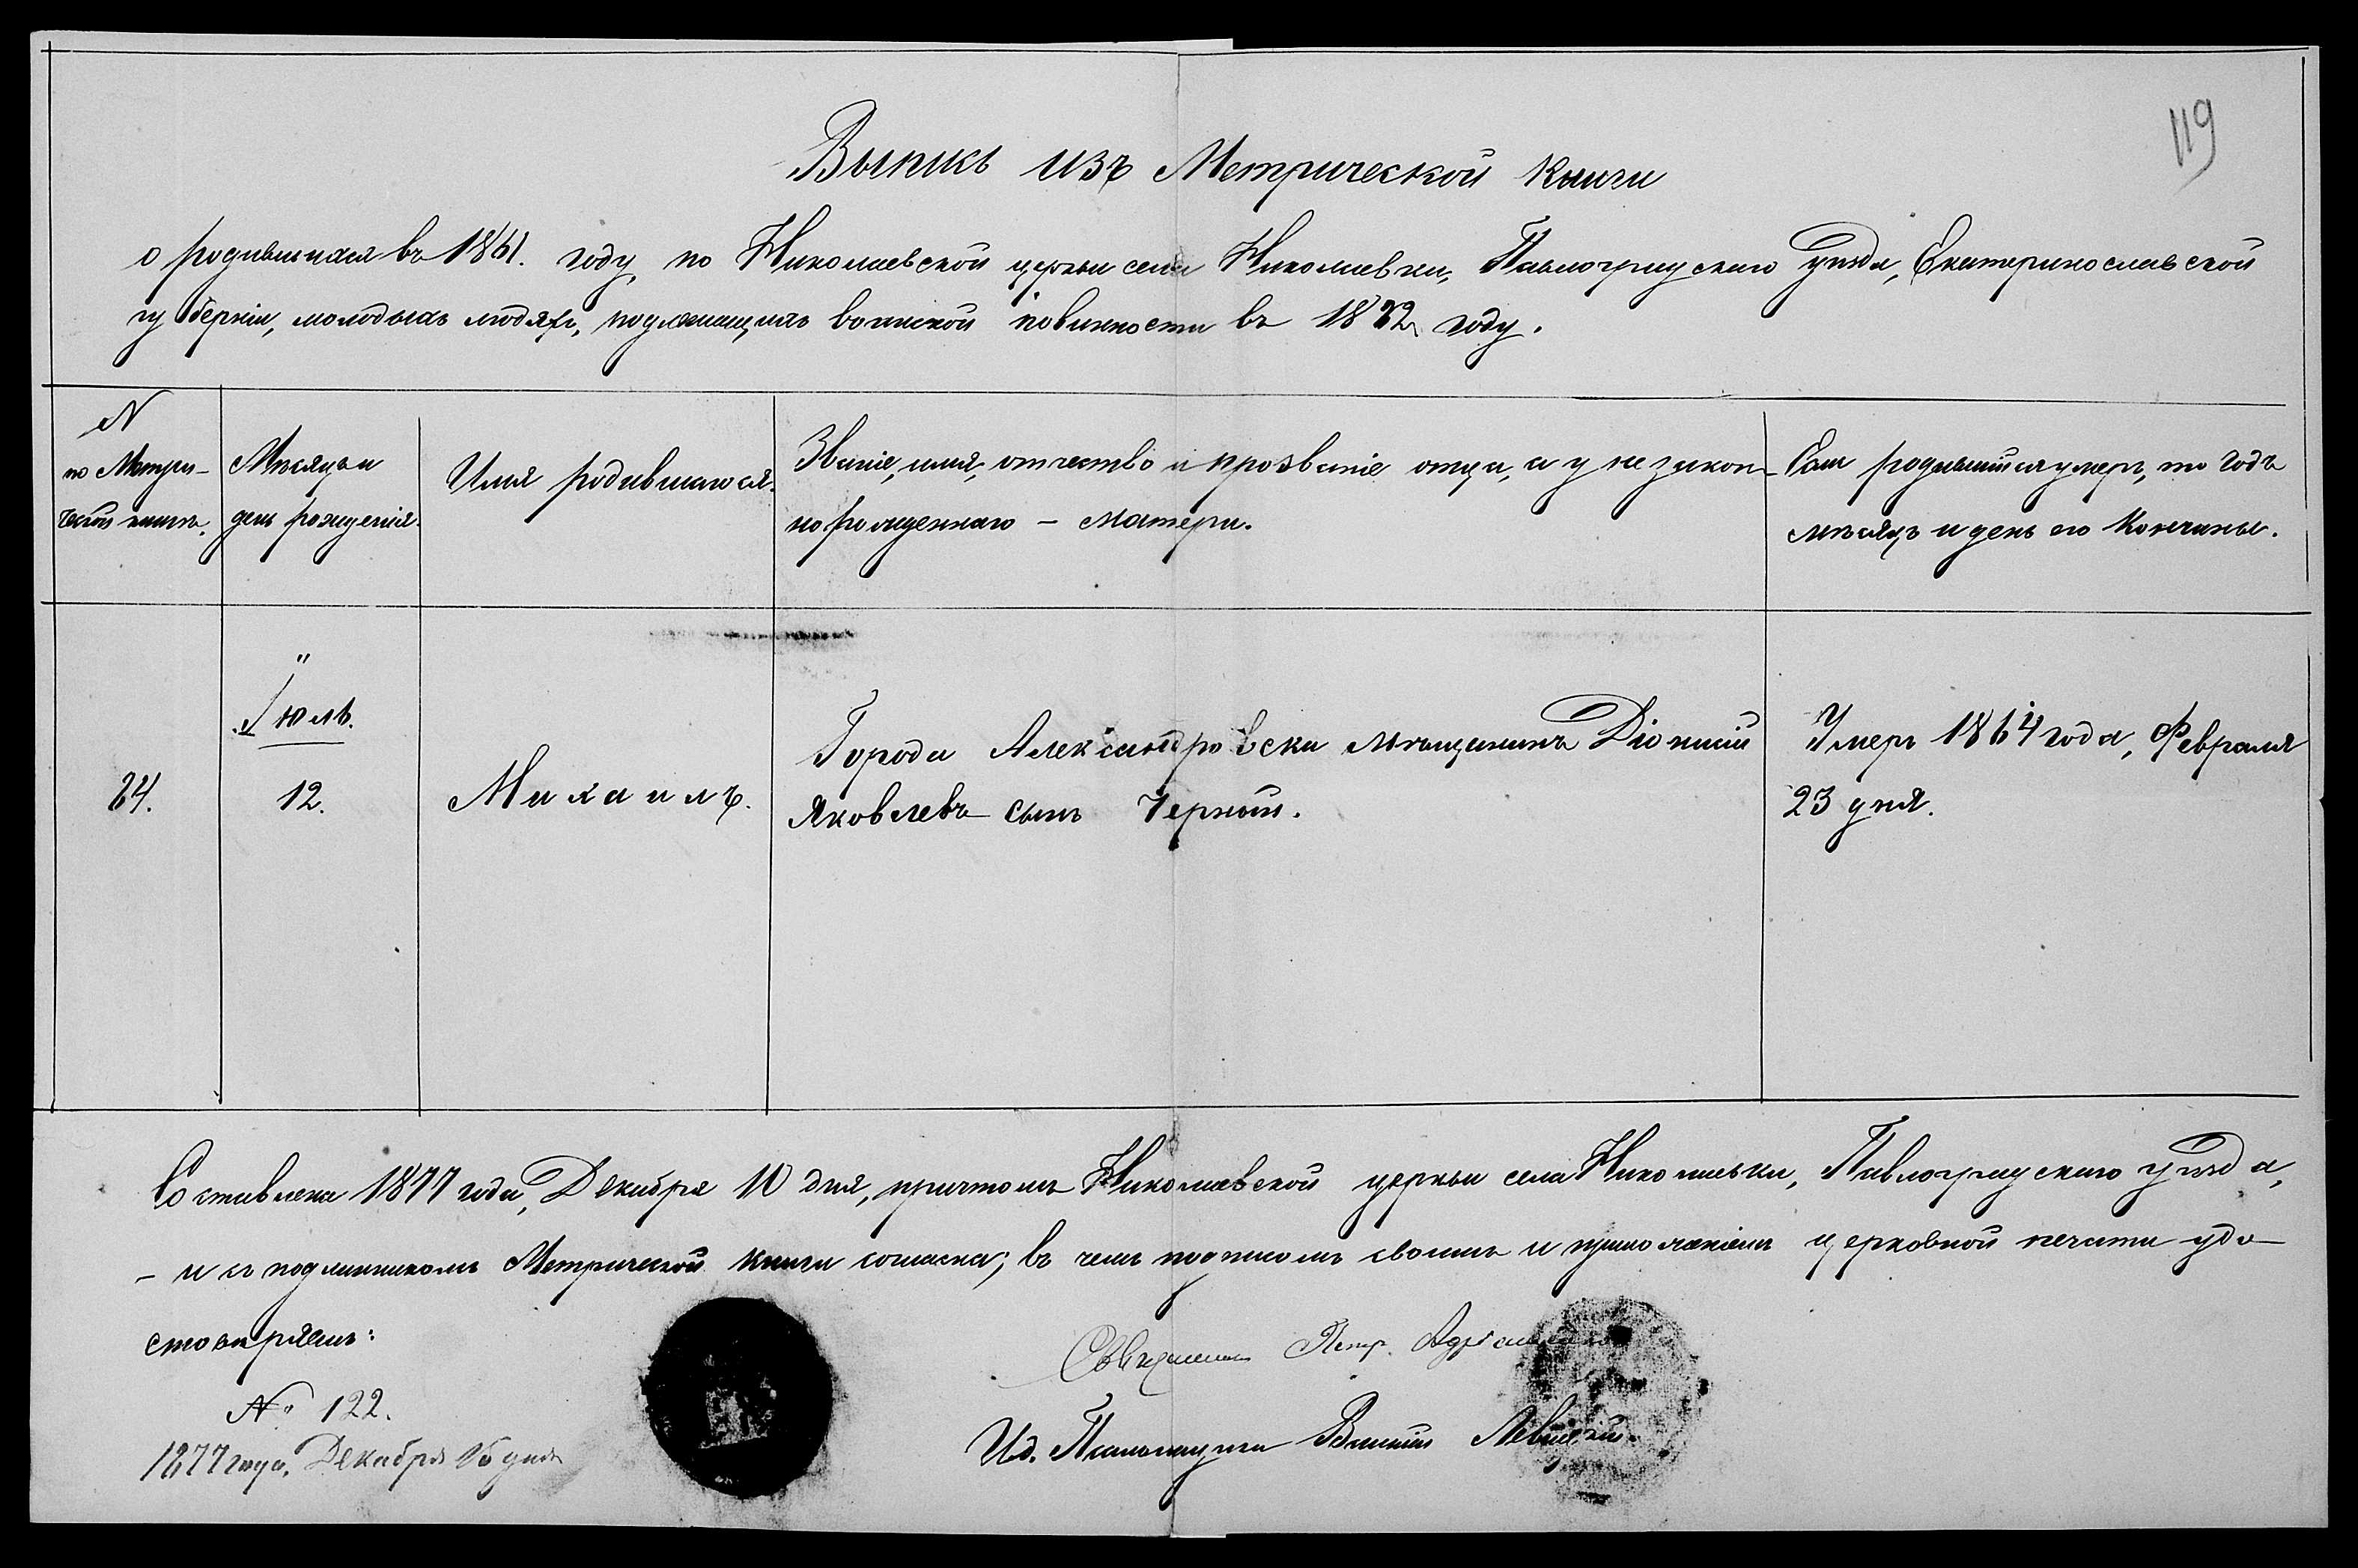 119
Выпись изъ Метрической Книги
о родившихся въ 1861. году, по Николаевской церкви села Николаевки, Павлоградскаго уѣзда, Екатеринославской
губерніи, молодыхъ людяхъ, подлежащихъ воинской повинности въ 1882 году.
N
по Метри-
ческой книгѣ.
Мѣсяцъ и
день рожденія.
Имя родившагося.
Званіе, имя, отчество и прозваніе отца, а у незакон-
норожденнаго - матери.
Если родившійся умеръ, то годъ
мѣсяцъ и день его кончины.
24.
Іюль.
12.
Михаилъ.
Города Александровска мѣщанинъ Діонисій
Яковлевъ сынъ Черный.
Умеръ 1864 года, Февраля
23 дня.
Составлена 1877 года, Декабря 10 дня, причтомъ Николаевской церкви села Николаевки, Павлоградскаго уѣзда,
- и съ подлинникомъ Метрической книги согласна; въ чемъ подписомъ своимъ и приложеніемъ церковной печати удо-
стовѣряемъ:
Священникъ Петр.
N: 122.
1877 года, Декабря 15 дня
И.д. Псаломщика Василій Левицкій.